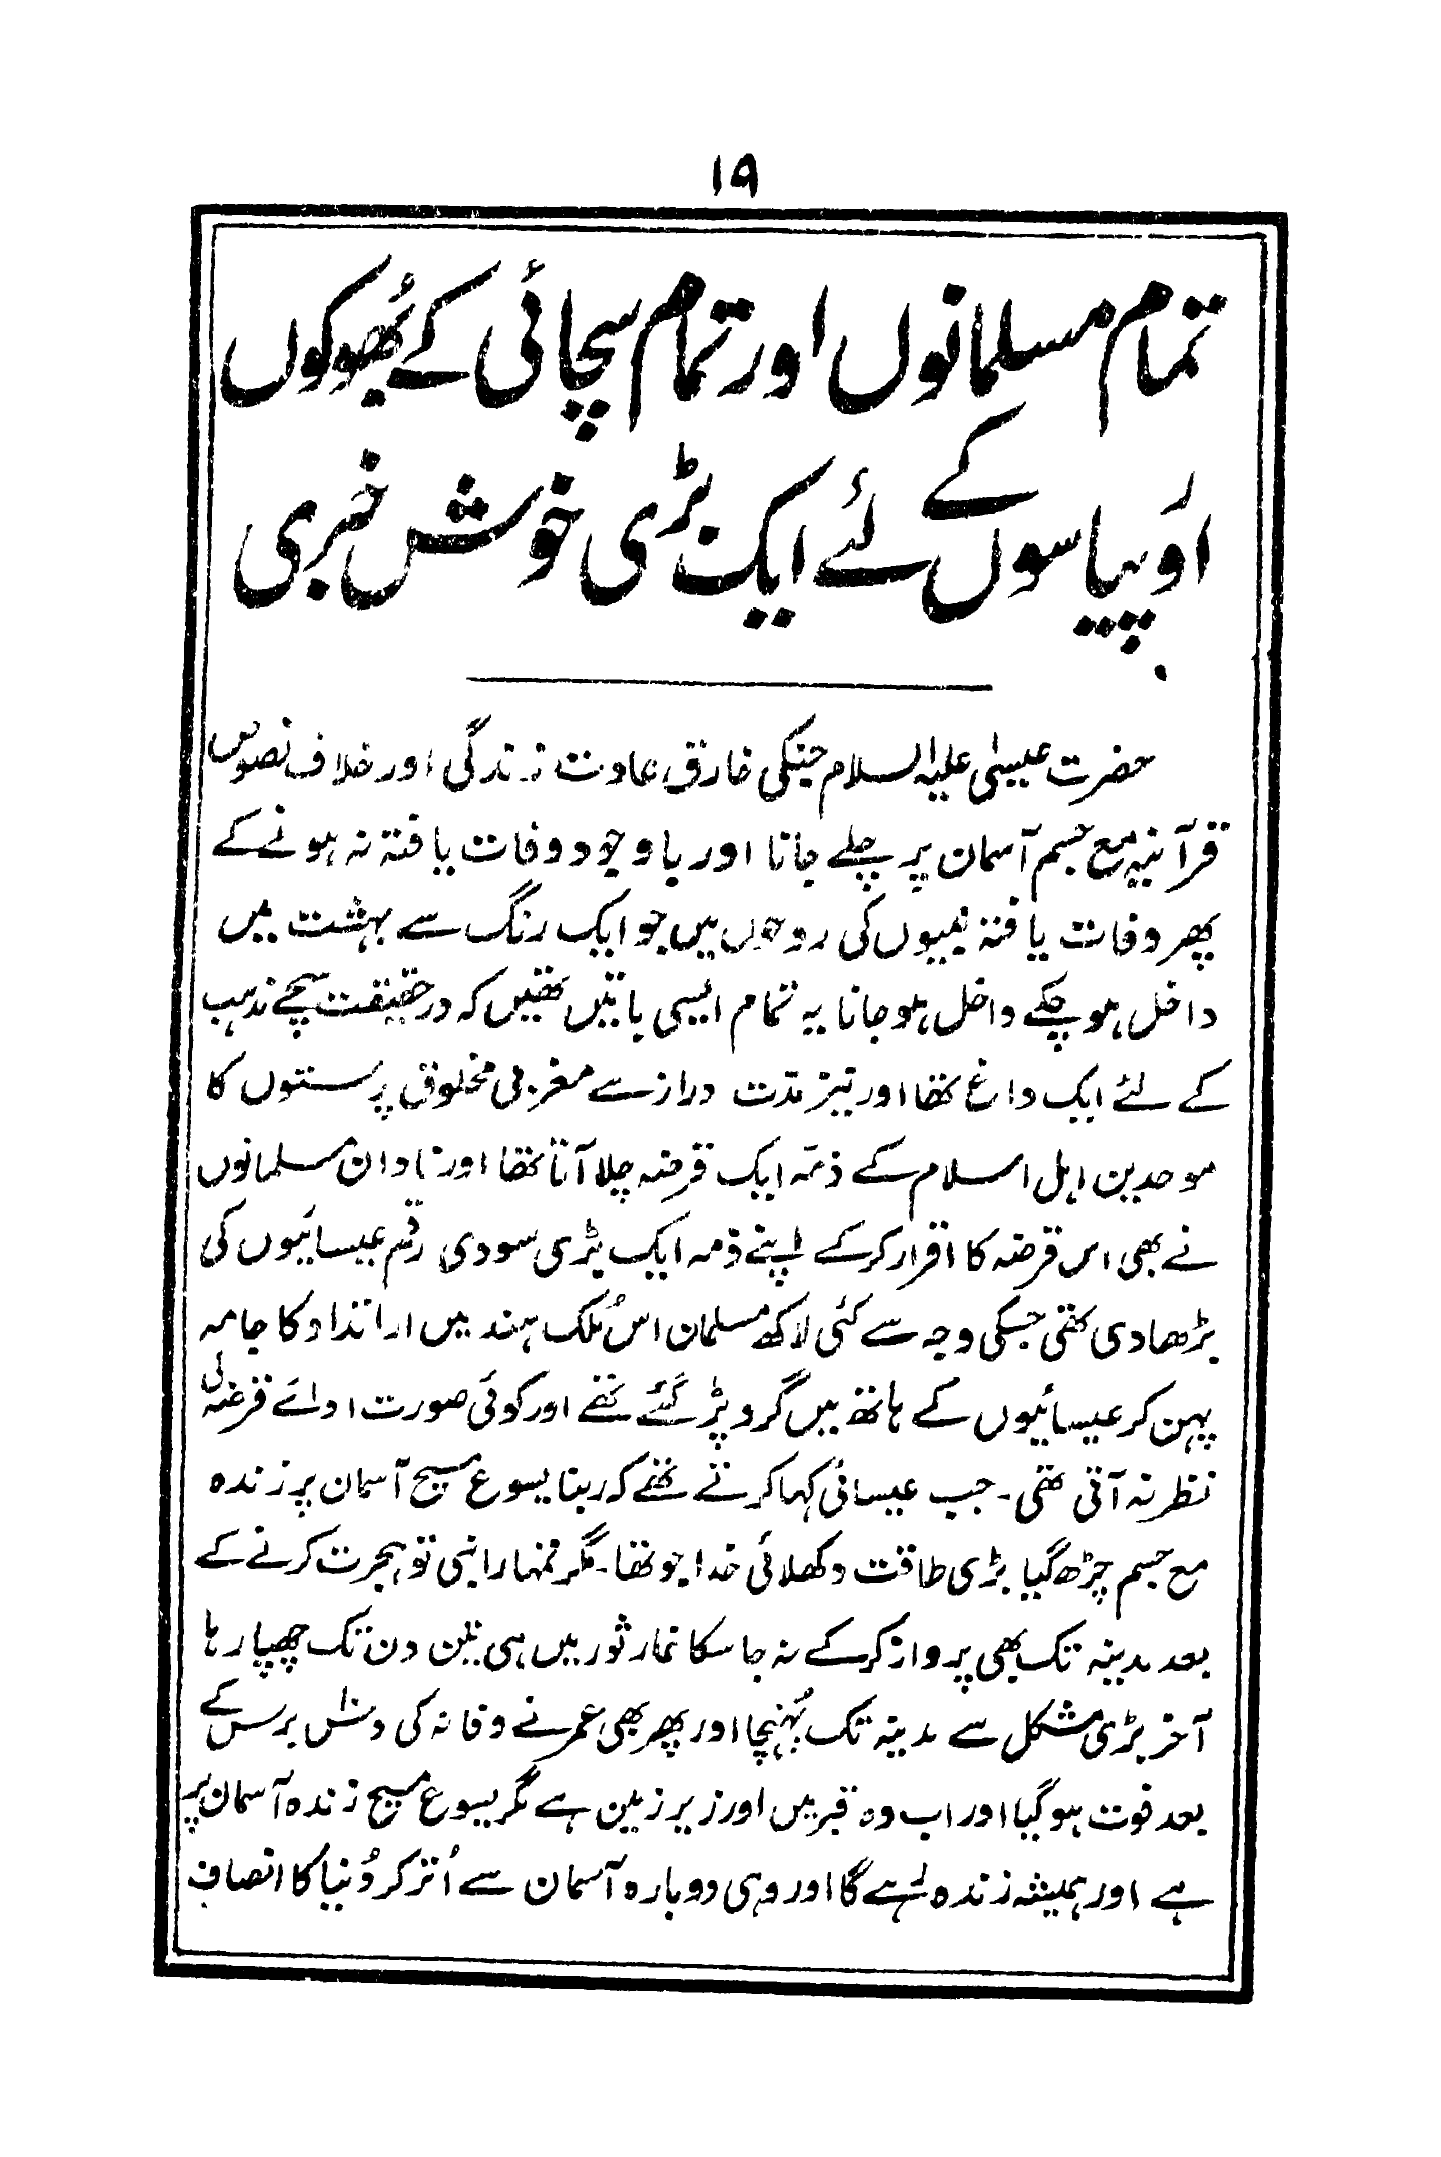 ۱۹
تمام مسلمانوں اور تمام سچائی کے بھوکوں
اور پیاسوں کے لئے ایک بڑی خوش خبری
حضرت عیسیٰ علیہ السلام جنکی خارق عادت زندگی اور خلاف نصوص
قرآنیہ مع جسم آسمان پر چلے جانا اور باوجود وفات یافتہ نہ ہونے کے
پھر وفات یافتہ نبیوں کی روحوں میں جو ایک رنگ سے بہشت میں
داخل ہو چکے داخل ہو جانا یہ تمام ایسی باتیں تھیں کہ درحقیقت سچے مذہب
کے لئے ایک داغ تھا اور نیز مدّت دراز سے مغربی مخلوق پرستوں کا
موحدین اہل اسلام کے ذمّہ ایک قرضہ چلا آتا تھا اور نادان مسلمانوں
نے بھی اس قرضہ کا اقرار کرکے اپنے ذمہ ایک بڑی سودی رقم عیسائیوں کی
بڑھا دی تھی جسکی وجہ سے کئی لاکھ مسلمان اس مُلک ہند میں ارتداد کا جامہ
پہن کر عیسائیوں کے ہاتھ میں گرو پڑ گئے تھے اور کوئی صورت ادائے قرضہ کی
نظر نہ آتی تھی۔ جب عیسائی کہا کرتے تھے کہ ربنا یسوع مسیح آسمان پر زندہ
مع جسم چڑھ گیا بڑی طاقت دکھلائی خدا جو تھا۔ مگر تمہارا نبی تو ہجرت کرنے کے
بعد مدینہ تک بھی پرواز کرکے نہ جا سکا غار ثور میں ہی تین دن تک چھپا رہا
آخر بڑی مشکل سے مدینہ تک پہُنچا اور پھر بھی عمر نے وفا نہ کی دس برس کے
بعد فوت ہو گیا اور اب وہ قبر میں اور زیر زمین ہے مگر یسوع مسیح زندہ آسمان پر
ہے اور ہمیشہ زندہ رہے گا اور وہی دوبارہ آسمان سے اُتر کر دُنیا کا انصاف